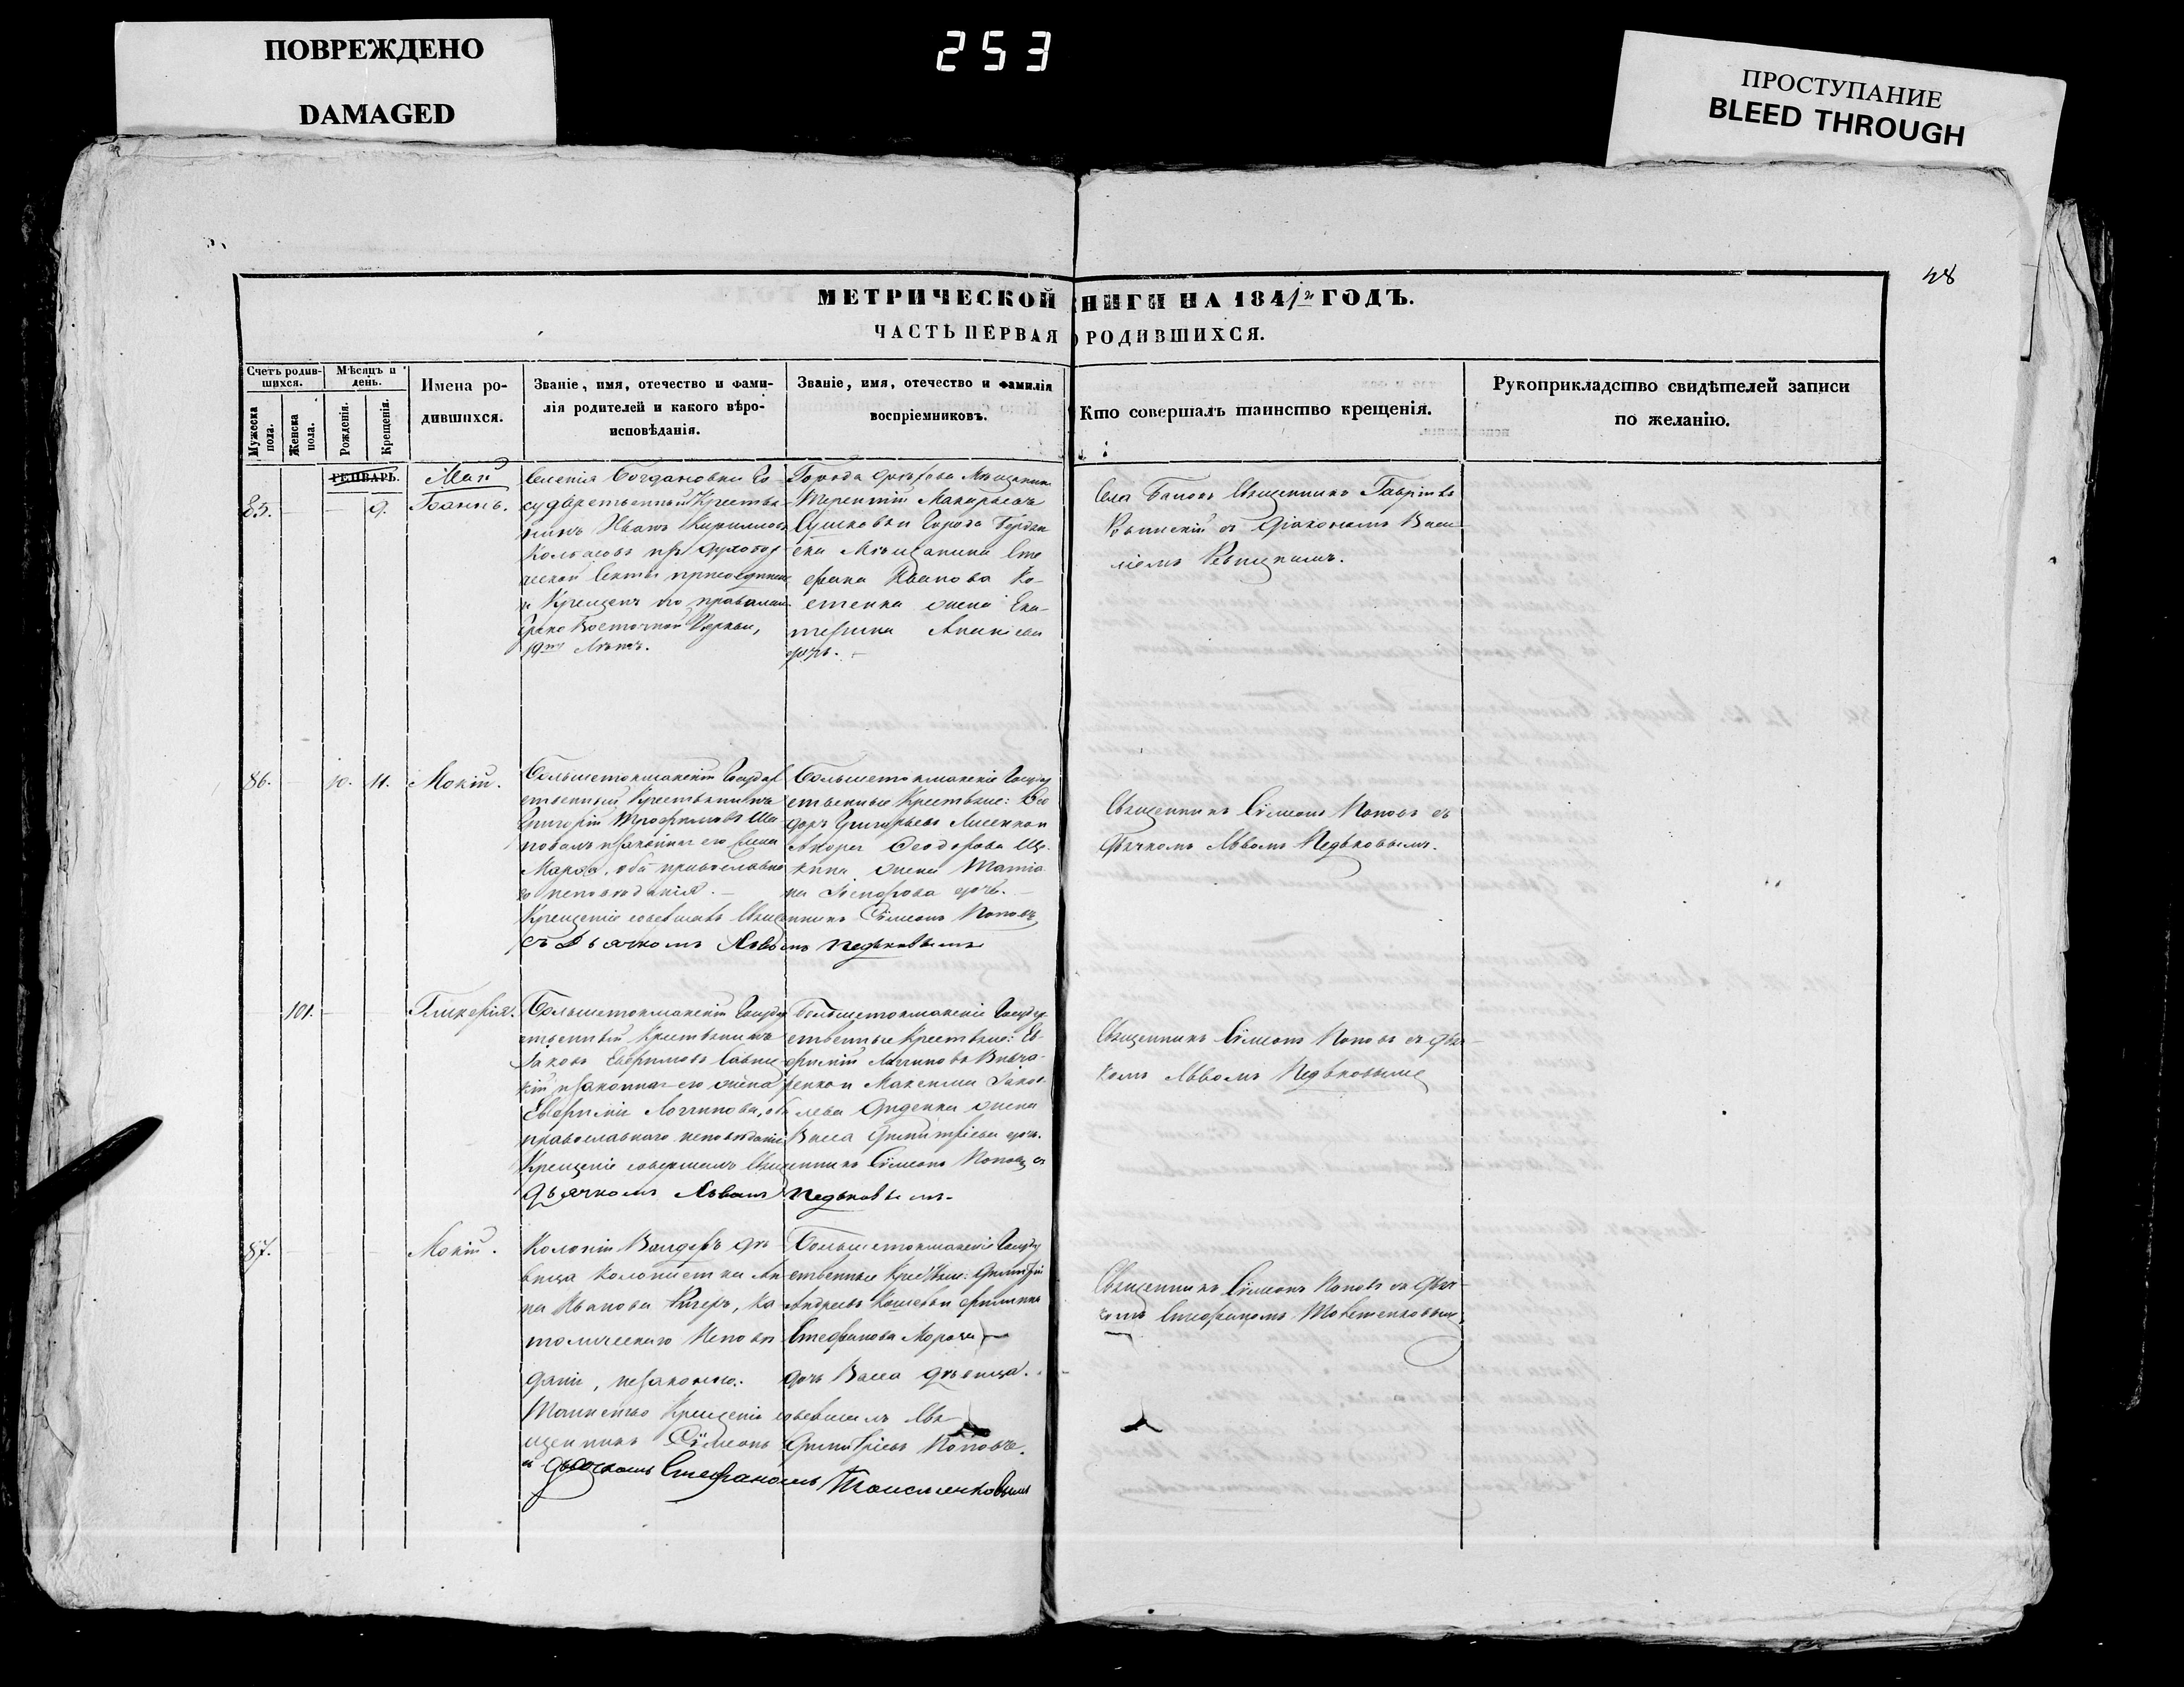 ПОВРЕЖДЕНО
DAMAGED
253
ПРОСТУПАНИЕ
BLEED THROUGH
48
МЕТРИЧЕСКОЙ НИГИ НА 1841й ГОДЪ.
ЧАСТЬ ПЕРВАЯ О РОДИВШИХСЯ.
Счетъ родив-
шихся.
Мужеска пола.
Женска пола.
Мѣсяцъ и день.
Рожденія.
Крещенія.
Имена ро-
дившихся.
Званіе, имя, отечество и фами-
лія родителей и какого вѣро-
исповѣданія.
Званіе, имя, отечество и фамилія
воспріемниковъ.
Кто совершалъ таинство крещенія.
Рукоприкладство свидѣтелей записи
по желанію.
ГЕНВАРЬ.
Май
85.
9.
Іоаннъ.
Селенія Богдановки Го-
сударственный Крестья-
нинъ Иванъ Кирилловъ
Колбасовъ изъ Духобор-
ческой Секты присоединенъ
и Крещенъ по правиламъ
Греко Восточной Церкви,
19ти Лѣтъ.
Города Орѣхова Мѣщанинъ
Терентій Макарьевъ
и Города Бердян
ска Мѣщанина Сте
фана Иванова Ко-
стенка жена Ека-
терина Ананіева
дочь.
Села Священникъ Гавріилъ
съ Діакономъ Васи
ліемъ
86.
10.
11.
Мокій.
Большетокмакскій Государ
ственный Крестьянинъ
Григорій Трофимовъ Ша-
повалъ и законная его жена
Марфа, оба православна
го исповѣданія.
Крещеніе совершалъ Священникъ Сѵмеонъ Поповъ
съ Дьячкомъ Львомъ Педьковымъ
Большетокмакскіе Государ
ственные Крестьяне: Ѳео
доръ Григорьевъ Лисенко и
Андрея Ѳеодорова Ще-
кина жена Татіа
на Никифорова дочь.
Священникъ Сѵмеонъ Поповъ съ
Дьячкомъ Львомъ Педьковымъ.
101.
Гликерія.
Большетокмакскій Государ
ственный Крестьянинъ
Іаковъ Евфимовъ Савиц
кій и законная его жена
Евфимія Логгинова, оба
православнаго исповѣданія
Крещеніе совершалъ Священникъ Сѵмеонъ Поповъ съ
Дьячкомъ Львомъ Педьковымъ.
Большетокмакскіе Государ
ственные Крестьяне: Ев-
фимій Логгиновъ
и Максима Іаков-
лева Диденка жена
Васса Димитріева дочь.
Священникъ Сѵмеонъ Поповъ съ Дьяч-
комъ Львомъ Педьковымъ
87.
Мокій.
Колоніи Вальдорфъ дѣ
вица Колонистка Ан
на Иванова Ригеръ, Ка
толическаго Исповѣ
данія, незаконно.
Таинство Крещенія совершалъ Свя-
щенникъ Сѵмеонъ Димитріевъ Поповъ.
съ Дьячкомъ Стефаномъ
Большетокмакскіе Государ
ственные Крестьяне: Димитрій
Андреевъ Кошевый и Филиппа
Стефанова Мороза
дочь Васса дѣвица.
Священникъ Сѵмеонъ Поповъ съ Дьяч-
комъ Стефаномъ